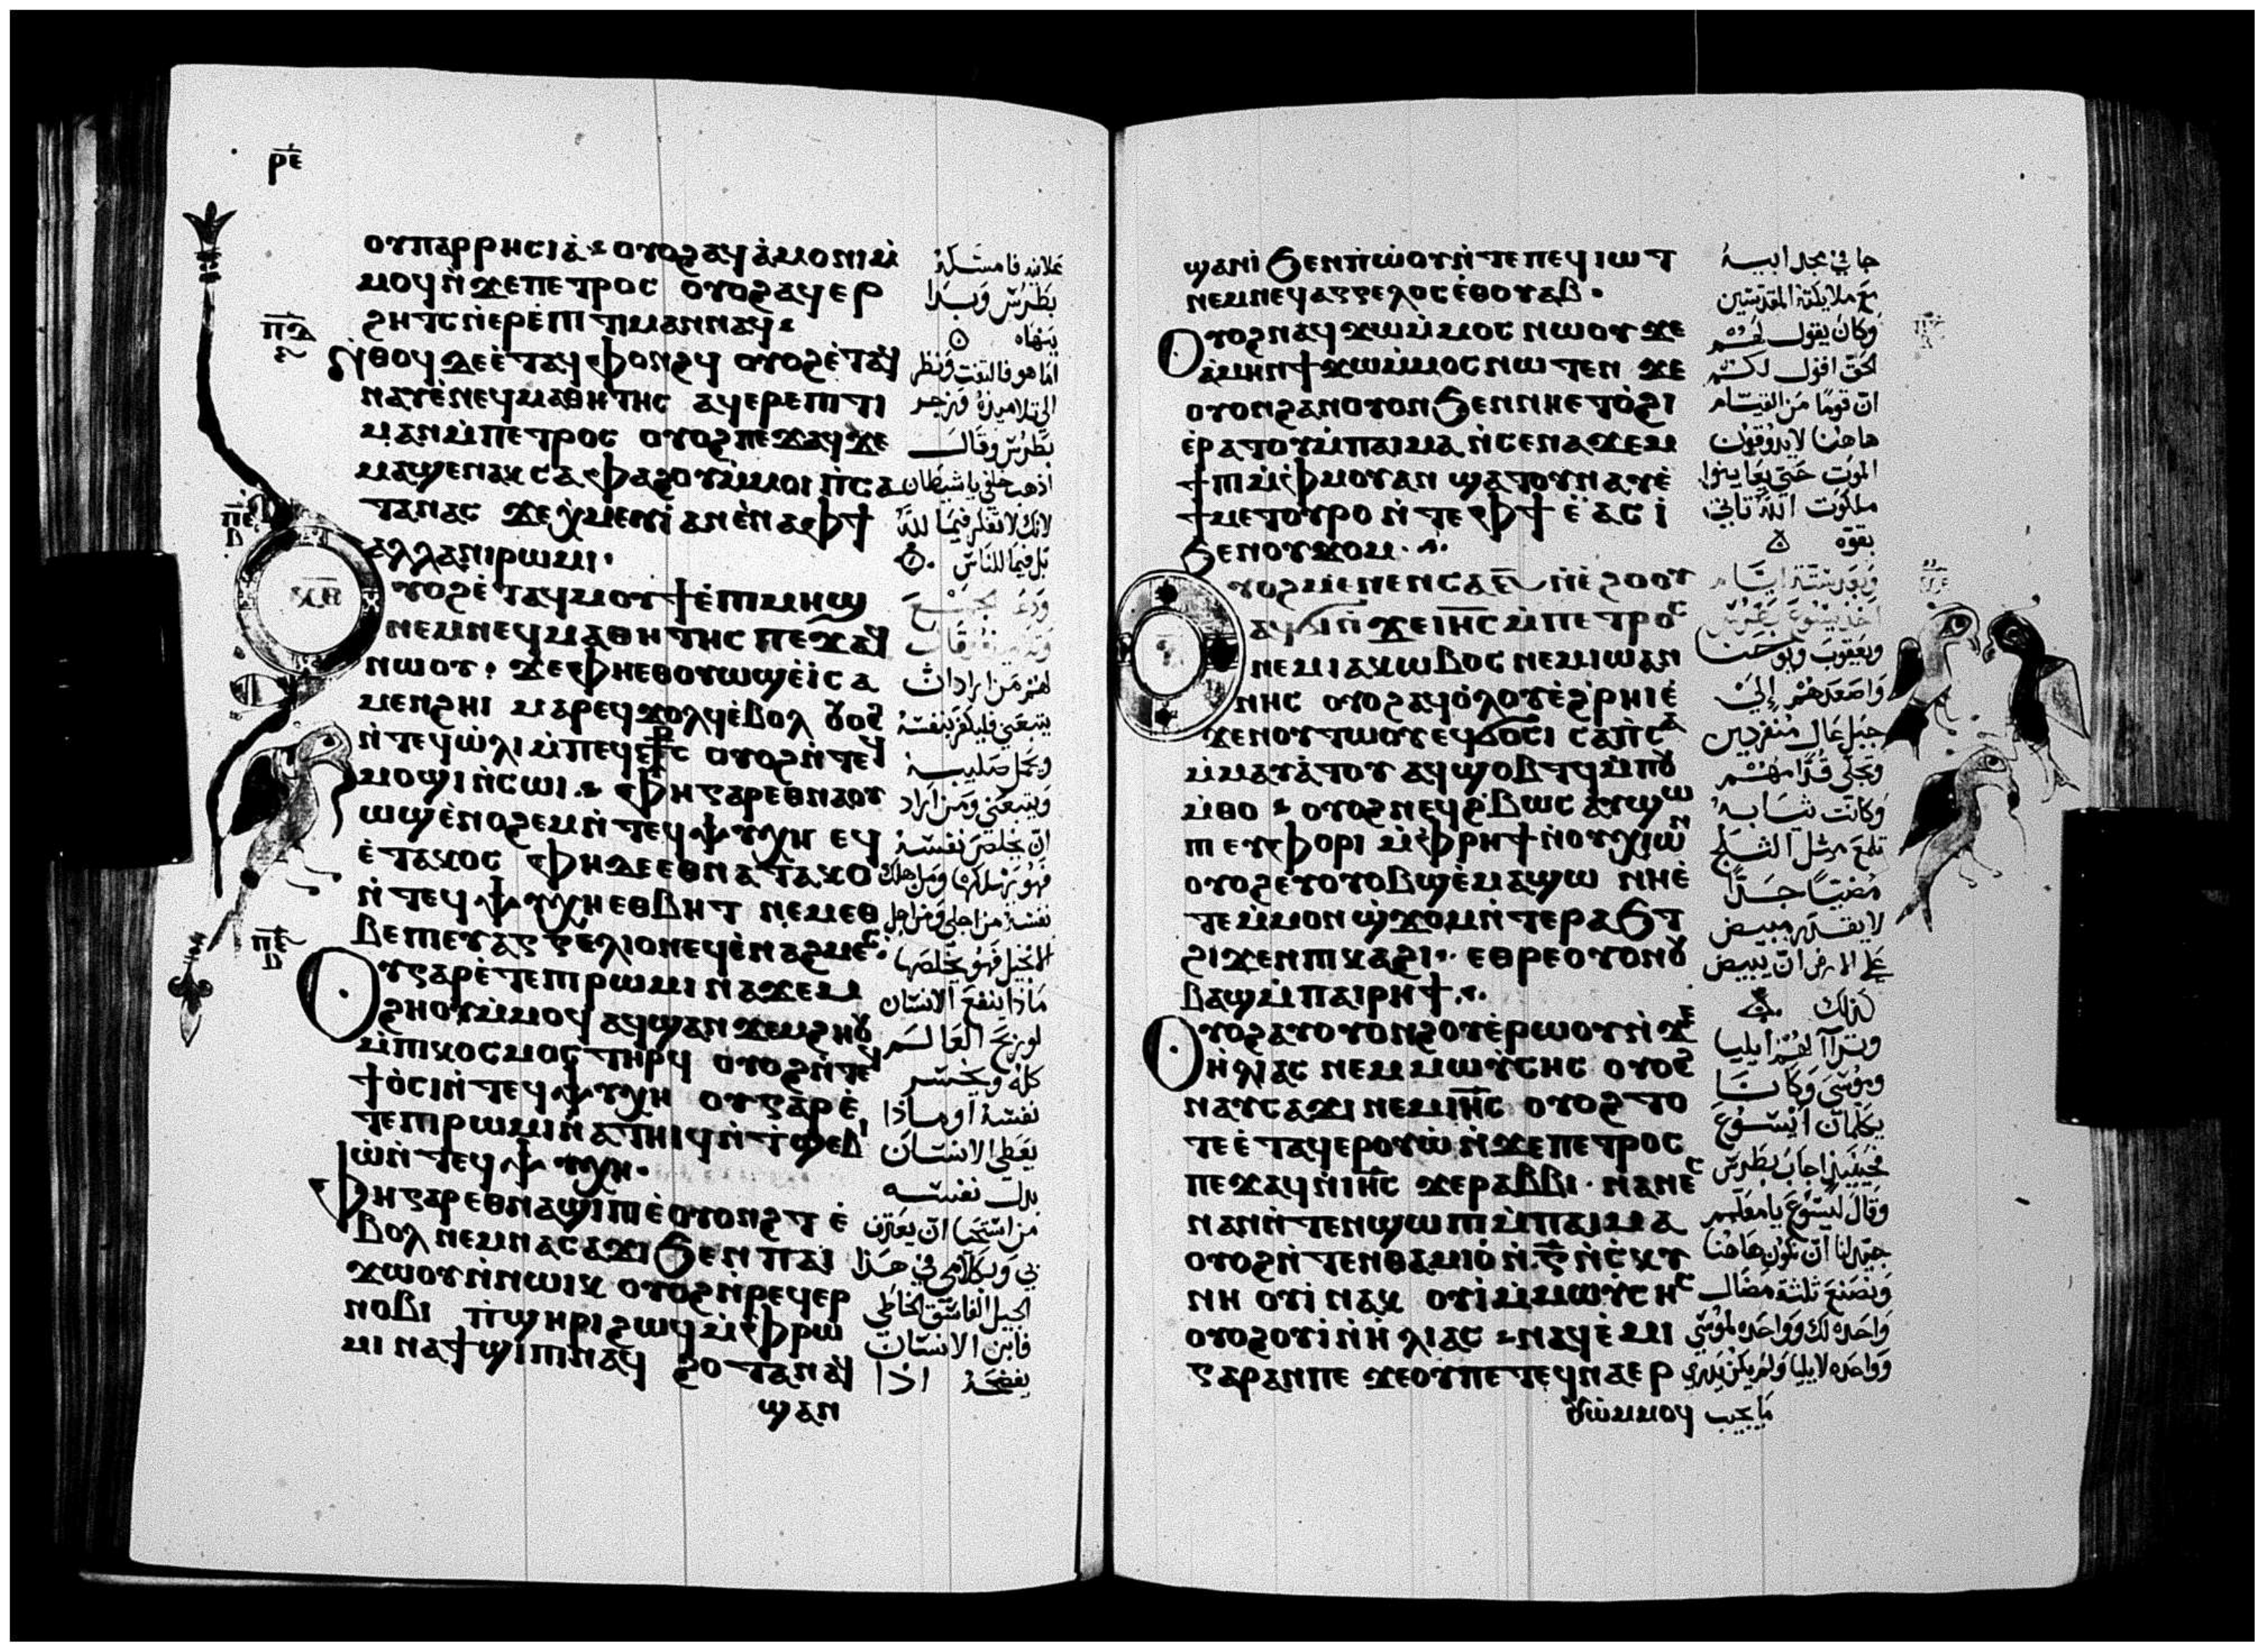 ⲣ̅ⲉ̅
ⲟⲩⲡⲁⲣⲣⲏⲥⲓⲁ̀ ⲟⲩⲟϩ ⲁϥⲁ̀ⲙⲟⲛⲓ ⲙ̀
ⲙⲟϥ ⲛ̀ϫⲉⲡⲉⲧⲣⲟⲥ ⲟⲩⲟϩ ⲁϥⲉⲣ
ϩⲏⲧⲥ ⲛ̀ⲉⲣⲉ̀ⲡⲓⲧⲓⲙⲁⲛ ⲛⲁϥ
ⲛ̀ⲑⲟϥ ⲇⲉ ⲉ̀ⲧⲁϥⲫⲟⲛϩϥ ⲟⲩⲟϩ ⲉ̀ⲧⲁϥ
ⲛⲁⲩ ⲉ̀ⲛⲉϥⲙⲁⲑⲏⲧⲏⲥ ⲁϥⲉⲣⲉⲡⲓⲧⲓ
ⲙⲁⲛ ⲙ̀ⲡⲉⲧⲣⲟⲥ ⲟⲩⲟϩ ⲡⲉϫⲁϥ ϫⲉ
ⲙⲁϣⲉⲛⲁⲕ ⲥⲁⲫⲁϩⲟⲩ ⲙ̀ⲙⲟⲓ ⲡ̀ⲥⲁ
ⲧⲁⲛⲁⲥ ϫⲉ ⲭ̀ⲙⲉⲩⲓ̀ ⲁⲛ ⲉ̀ⲛⲁⲫϯ
ⲁⲗⲗⲁ ⲛⲓⲣⲱⲙⲓ
ⲟⲩⲟϩ ⲉ̀ⲧⲁϥⲙⲟⲩϯ ⲉ̀ⲡⲓⲙⲏϣ
ⲛⲉⲙ ⲛⲉϥⲙⲁⲑⲏⲧⲏⲥ ⲡⲉϫⲁϥ
ⲛⲱⲟⲩ ϫⲉ ⲫⲏⲉⲑⲟⲩⲱϣ ⲉ̀ⲓ̀ ⲥⲁ
ⲙⲉⲛϩⲏⲓ ⲙⲁⲣⲉϥϫⲟⲗϥ ⲉ̀ⲃⲟⲗ ⲟⲩⲟϩ
ⲛ̀ⲧⲉϥⲱ̀ⲗⲓ ⲙ̀ⲡⲉϥⲥ̅ⲧ̅ⲥ̅ ⲟⲩⲟϩ ⲛ̀ⲧⲉϥ
ⲙⲟϣⲓ ⲛ̀ⲥⲱⲓ ⲫⲏ ⲅⲁⲣ ⲉⲑⲛⲁⲟⲩ
ⲱϣ ⲉ̀ⲛⲟϩⲉⲙ ⲛ̀ⲧⲉϥⲯⲩⲭⲏ ⲉϥ
ⲉ̀ⲧⲁⲕⲟⲥ ⲫⲏ ⲇⲉ ⲉⲑⲛⲁⲧⲁⲕⲟ
ⲛ̀ⲧⲉϥⲯⲩⲭⲏ ⲉⲑⲃⲏⲧ ⲛⲉⲙ ⲉⲑ
ⲃⲉ ⲡⲓⲉⲩⲁⲅⲅⲉⲗⲓⲟⲛ ⲉϥⲉ̀ⲛⲁϩⲙⲉⲥ
ⲟⲩ ⲅⲁⲣ ⲉ̀ⲧⲉ ⲡⲓⲣⲱⲙⲓ ⲛⲁϫⲉⲙ
ϩⲏⲟⲩ ⲙ̀ⲙⲟϥ ⲁϥϣⲁⲛϫⲉⲙϩⲏⲟⲩ
ⲙ̀ⲡⲓⲕⲟⲥⲙⲟⲥ ⲧⲏⲣϥ ⲟⲩⲟϩ ⲛ̀ⲧⲉϥ
ϯⲟ̀ⲥⲓ ⲛ̀ⲧⲉϥⲯⲩⲭⲏ ⲟⲩ ⲅⲁⲣ ⲉ̀
ⲧⲉ ⲡⲓⲣⲱⲙⲓ ⲛⲁⲧⲏⲓϥ ⲛ̀ⲧ̀ϣⲉⲃⲓ
ⲱ̀ ⲛ̀ⲧⲉϥⲯⲩⲭⲏ
ⲫⲏ ⲅⲁⲣ ⲉⲑⲛⲁϣⲓⲡⲓ ⲉ̀ⲟⲩⲟⲛϩⲧ ⲉ̀
ⲃⲟⲗ ⲛⲉⲙ ⲛⲁⲥⲁϫⲓ ϧⲉⲛ ⲡⲁⲓ
ϫⲱⲟⲩ ⲛ̀ⲛⲱⲓⲕ ⲟⲩⲟϩ ⲛ̀ⲣⲉϥⲉⲣ
ⲛⲟⲃⲓ ⲡ̀ϣⲏⲣⲓ ϩⲱϥ ⲙ̀ⲫⲣⲱ
ⲙⲓ ⲛⲁϯϣⲓⲡⲓ ⲛⲁϥ ϩⲟⲧⲁⲛ ⲁϥ
ϣⲁⲛ
علانيه فامسكه
بطرس وبدا
ينهاه
اما هو فالتفت ونظر
الى تلاميذه وزجر
بطرس وقال
اذهب خلفي يا شيطان
لانك لا تفكر فيما لله
بل فيما للناس
لهم من اراد ان
يتبعني فليكفر بنفسه
ويحمل صليبه
ويتبعني ومن اراد
ان يخلص نفسه
فهو يهلكها ومن اهلك
نفسه من اجلي ومن اجل
الانجيل فهو يخلصها
ماذا ينفع الانسان
لو ربح العالم
كله ويخسر
نفسه او ماذا
يعطي الانسان
بدل نفسه
من استحيا ان يعترف
بي وبكلامي في هذا
الجيل الفاسق الخاطي
فابن الانسان
يفضحه اذا
ϣⲁⲛⲓ̀ ϧⲉⲛ ⲡ̀ⲱ̀ⲟⲩ ⲛ̀ⲧⲉ ⲡⲉϥⲓⲱⲧ
ⲛⲉⲙ ⲛⲉϥⲁⲅⲅⲉⲗⲟⲥ ⲉ̀ⲑⲟⲩⲁⲃ
ⲟⲩⲟϩ ⲛⲁϥϫⲱ ⲙ̀ⲙⲟⲥ ⲛⲱⲟⲩ ϫⲉ
ⲁ̀ⲙⲏⲛ ϯϫⲱ ⲙ̀ⲙⲟⲥ ⲛⲱⲧⲉⲛ ϫⲉ
ⲟⲩⲟⲛ ϩⲁⲛⲟⲩⲟⲛ ϧⲉⲛ ⲛⲏⲉⲧⲟ̀ϩⲓ
ⲉ̀ⲣⲁⲧⲟⲩ ⲙ̀ⲡⲁⲓⲙⲁ ⲛ̀ⲥⲉⲛⲁϫⲉⲙ
ϯⲡⲓ ⲙ̀ⲫⲙⲟⲩ ⲁⲛ ϣⲁⲧⲟⲩⲛⲁⲩ ⲉ̀
ϯⲙⲉⲧⲟⲩⲣⲟ ⲛ̀ⲧⲉ ⲫϯ ⲉ̀ⲁⲥⲓ̀
ϧⲉⲛ ⲟⲩϫⲟⲙ
ⲟⲩⲟϩ ⲙⲉⲛⲉⲛⲥⲁ ⲋ̅ ⲛ̀ⲉ̀ϩⲟⲟⲩ
ⲁϥϭⲓ ⲛ̀ϫⲉ ⲓⲏ̅ⲥ̅ ⲙ̀ⲡⲉⲧⲣⲟⲥ
ⲛⲉⲙ ⲓⲁⲕⲱⲃⲟⲥ ⲛⲉⲙ ⲓⲱⲁⲛ
ⲛⲏⲥ ⲟⲩⲟϩ ⲁϥⲟ̀ⲗⲟⲩ ⲉ̀ϩ̀ⲣⲏⲓ ⲉ̀
ϫⲉⲛ ⲟⲩⲧⲱⲟⲩ ⲉϥϭⲟⲥⲓ ⲥⲁⲡ̀ⲥⲁ
ⲙ̀ⲙⲁⲩⲁ̀ⲧⲟⲩ ⲁϥϣⲟⲃⲧϥ ⲙ̀ⲡⲟⲩ
ⲙ̀ⲑⲟ ⲟⲩⲟϩ ⲛⲉϥϩ̀ⲃⲱⲥ ⲁⲩϣⲱ
ⲡⲓ ⲉⲩⲫⲟⲣⲓ ⲙ̀ⲫⲣⲏϯ ⲛ̀ⲟⲩⲭⲓⲱⲛ
ⲟⲩⲟϩ ⲉ̀ⲩⲟⲩⲟⲃϣ ⲉ̀ⲙⲁϣⲱ ⲛⲏⲉ̀
ⲧⲉ ⲙ̀ⲙⲟⲛ ϣ̀ϫⲟⲙ ⲛ̀ⲧⲉ ⲣⲁϧⲧ
ϩⲓϫⲉⲛ ⲡⲓⲕⲁϩⲓ ⲉⲑⲣⲉ ⲟⲩⲟⲛ ⲟⲩ
ⲃⲁϣ ⲙ̀ⲡⲁⲓⲣⲏϯ
ⲟⲩⲟϩ ⲁⲩⲟⲩⲟⲛϩⲟⲩ ⲉ̀ⲣⲱⲟⲩ ⲛ̀ϫⲉ
ⲏ̀ⲗⲓⲁⲥ ⲛⲉⲙ ⲙⲱⲩ̀ⲥⲏⲥ ⲟⲩⲟϩ
ⲛⲁⲩⲥⲁϫⲓ ⲛⲉⲙ ⲓⲏ̅ⲥ̅ ⲟⲩⲟϩ ⲧⲟ
ⲧⲉ ⲉ̀ⲧⲁϥⲉⲣⲟⲩⲱ̀ ⲛ̀ϫⲉ ⲡⲉⲧⲣⲟⲥ
ⲡⲉϫⲁϥ ⲛ̀ⲓⲏ̅ⲥ̅ ϫⲉ ⲣⲁⲃⲃⲓ ⲛⲁⲛⲉⲥ
ⲛⲁⲛ ⲛ̀ⲧⲉⲛϣⲱⲡⲓ ⲙ̀ⲡⲁⲓⲙⲁ
ⲟⲩⲟϩ ⲛ̀ⲧⲉⲛⲑⲁⲙⲓⲟ̀ ⲛ̀ⲅ̅ ⲛ̀ⲥ̀ⲕⲩ
ⲛⲏ ⲟⲩⲓ̀ ⲛⲁⲕ ⲟⲩⲓ̀ ⲙ̀ⲙⲱⲩ̀ⲥⲏⲥ
ⲟⲩⲟϩ ⲟⲩⲓ̀ ⲛ̀ⲏ̀ⲗⲓⲁⲥ ⲛⲁϥⲉ̀ⲙⲓ
ⲅⲁⲣ ⲁⲛ ⲡⲉ ϫⲉ ⲟⲩ ⲡⲉⲧⲉϥⲛⲁⲉⲣ
ⲟⲩⲱ̀ ⲙ̀ⲙⲟϥ
جا في مجد ابيه
مع ملايكته المقدسين
وكان يقول لهم
الحق اقول لكم
ان قوما من القيام
هاهنا لا يذوقون
الموت حتى يعاينوا
ملكوت الله تاتي
بقوه
وبعد ستة ايام
اخذ يسوع بطرس
ويعقوب ويوحنا
واصعدهم الى
جبل عال منفردين
وتجلى قدامهم
وكانت ثيابه
تلمع مثل الثلج
مضيا جدا
لا يقدر مبيض
على الارض ان يبيض
كذلك
وترآا لهم ايليا
وموسى وكانا
يكلمان ايسوع
فحينيذ اجاب بطرس
وقال ليسوع يا معلم
جيد لنا ان نكون هاهنا
ونصنع ثلثة مضال
واحده لك وواحده لموسى
وواحده لايليا ولم يكن يدري
ما يجيب